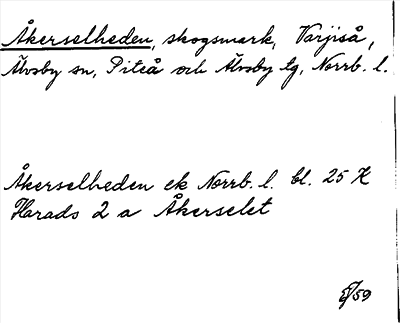 Åkerselheden, skogsmark, Varjiså,
Älvsby sn, Piteå och Älvsby tg, Norrb. l.
Åkerselheden ek Norrb. l. bl. 25 K
Harads 2 a Åkerselet
59